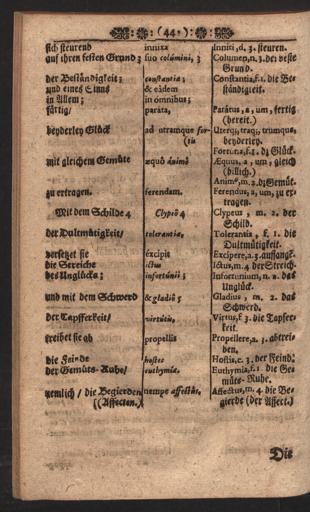 (44)
sich steurend innixa Inniti, d. 3. steuren.
auf ihren festen Grund; suo columini, 3 Columen, n. 3. der veste
Grund.
der Beständigkeit; constantiæ; Constantia, f. 1. die Be-
und eines Sinns & eâdem ständigkeit.
in Allem; in omnibus;
färtig/ parata, Parátus, a, um, fertig
(bereit.)
beyderley Glück ad utramque for- Uterq;, traq;, trumque,
(tu beyderley.
Fortuna, f. 1. dz Glück.
mit gleichem Gemüte æquô ánimô Æquus, a, um, gleich
(billich.)
Anim9, m. 2. dz Gemüt.
zu ertragen. ferendam. Ferendus, a, um, zu er-
tragen.
Mit dem Schilde 4 Clypeô 4 Clypeus, m. 2. der
Schild.
der Dultmütigkeit/ tolerantiæ, Tolerantia, f. 1. die
Dultmütigkeit.
versetzt sie éxcipit Excipere, a. 3. auffangē.
die Streiche ictus Ictus, m. 4. der Streich.
des Unglücks; infortúnii; Infortunium, n. 2. das
Unglück.
und mit dem Schwerd & gladiô 5 Gladius, m. 2. das
Schwerd.
der Tapfferkeit/ virtútis, Virtus, f. 3. die Tapfer-
keit.
treibet sie ab propellit Propellere, a. 3. abtrei-
ben.
die Feinde hostes Hostis, c. 3. der Feind.
der Gemüts-Ruhe/ euthymiæ, Euthymia, f. 1. die Ge-
müts-Ruhe.
nemlich/ die Begierden nempe affectûs, Affectus, m. 4. die Be-
((Affecten.) gierde (der Affect.)
Die